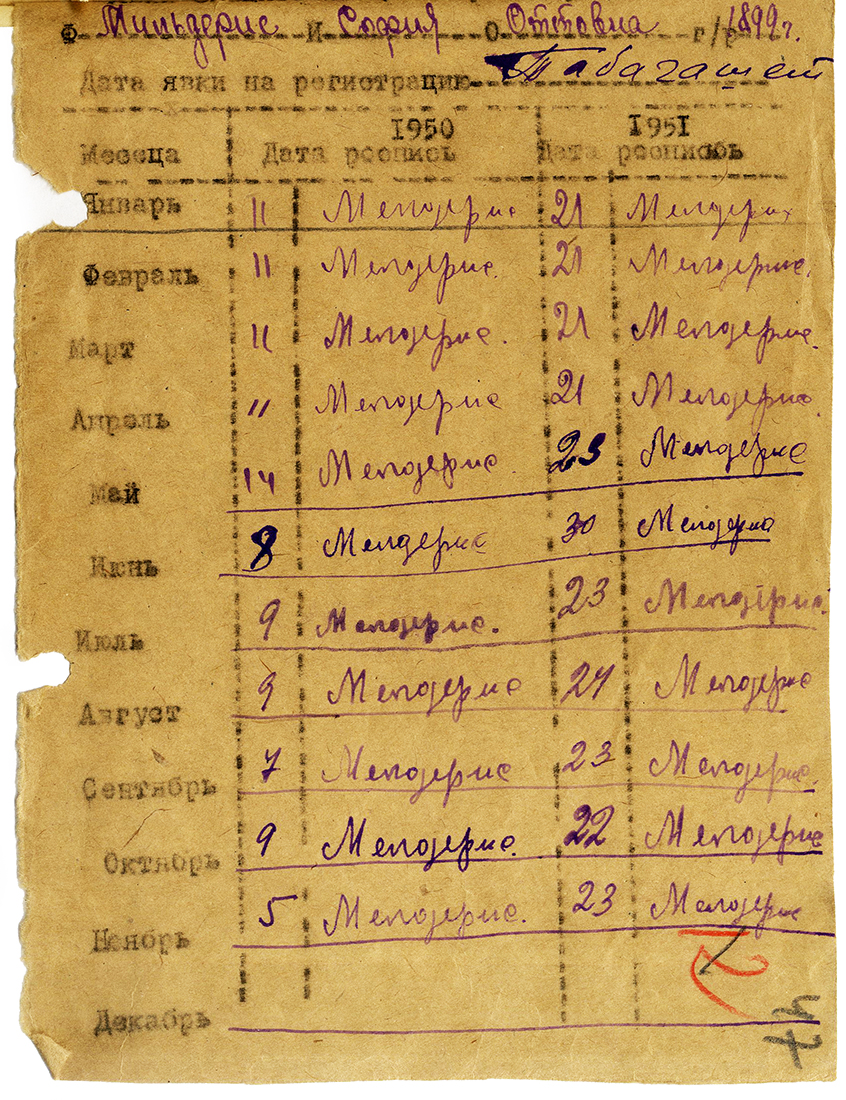 Ф Мильдерис И София О Оттовна г/р 1899г.
Дата явки на регистрацию Табагашет
1950 1951
Месеца Дата роспись Дата роспись
Январь 11 Мелдерис 21 Мелдерис
Февраль 11 Мелдерис. 21 Мелдерис.
Март 11 Мелдерис. 21 Мелдерис.
Апрель 11 Мелдерис 21 Мелдерис.
Май 14 Мелдерис. 23 Мелдерис
Июнь 8 Мелдерис 30 Мелдерис
Июль 9 Мелдерис. 23 Мелдерис.
Август 9 Мелдерис 24 Мелдерис
Сентябрь 7 Мелдерис 23 Мелдерис.
Октябрь 9 Мелдерис. 22 Мелдерис
Ноябрь 5 Мелдерис. 23 Мелдерис
Декабрь